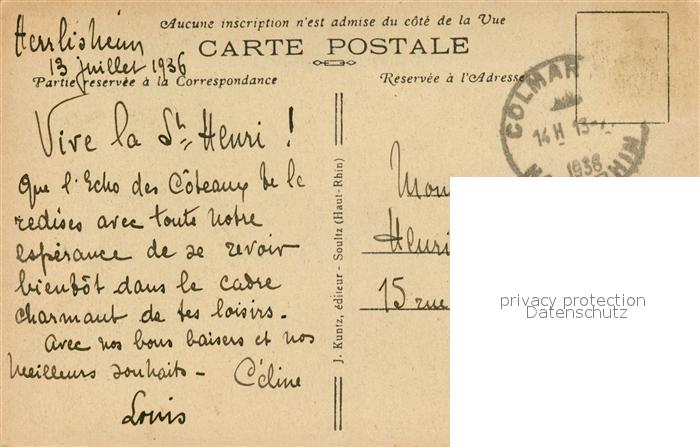 Aucune inscription n'est admise du côté de la Vue
CARTE POSTALE
Herrlisheim
13 juillet 1936
Partie réservée à la Correspondance
Réservée à l'Adresse
Vive la St Henri !
Que l'Echo des Côteaux te le
redises avec toute notre
espérance de se revoir
bientôt dans le cadre
charmant de tes loisirs.
Avec nos bons baisers et nos
meilleurs souhaits - Céline
Louis
J. Kuntz, éditeur - Soultz (Haut-Rhin)
COLMAR
14 H 13-7
1936
RHIN
Mon
Henri
15 rue
privacy protection
Datenschutz